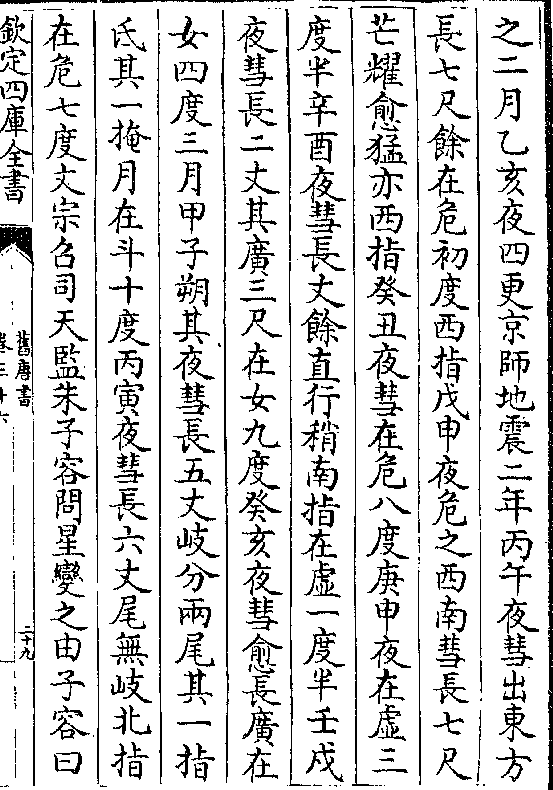 之二月乙亥夜四更京師地震二年丙午夜彗出東方
長七尺餘在危初度西指戊申夜危之西南彗長七尺
芒耀愈猛亦西指癸丑夜彗在危八度庚申夜在虛三
度半辛酉夜彗長丈餘直行稍南指在虛一度半壬戌
夜彗長二丈其廣三尺在女九度癸亥夜彗愈長廣在
女四度三月甲子朔其夜彗長五丈岐分兩尾其一指
氐其一掩月在斗十度丙寅夜彗長六丈尾無岐北指
在危七度文宗召司天監朱子容問星變之由子容曰
欽定四庫全書
舊唐書
卷三十六
二十九